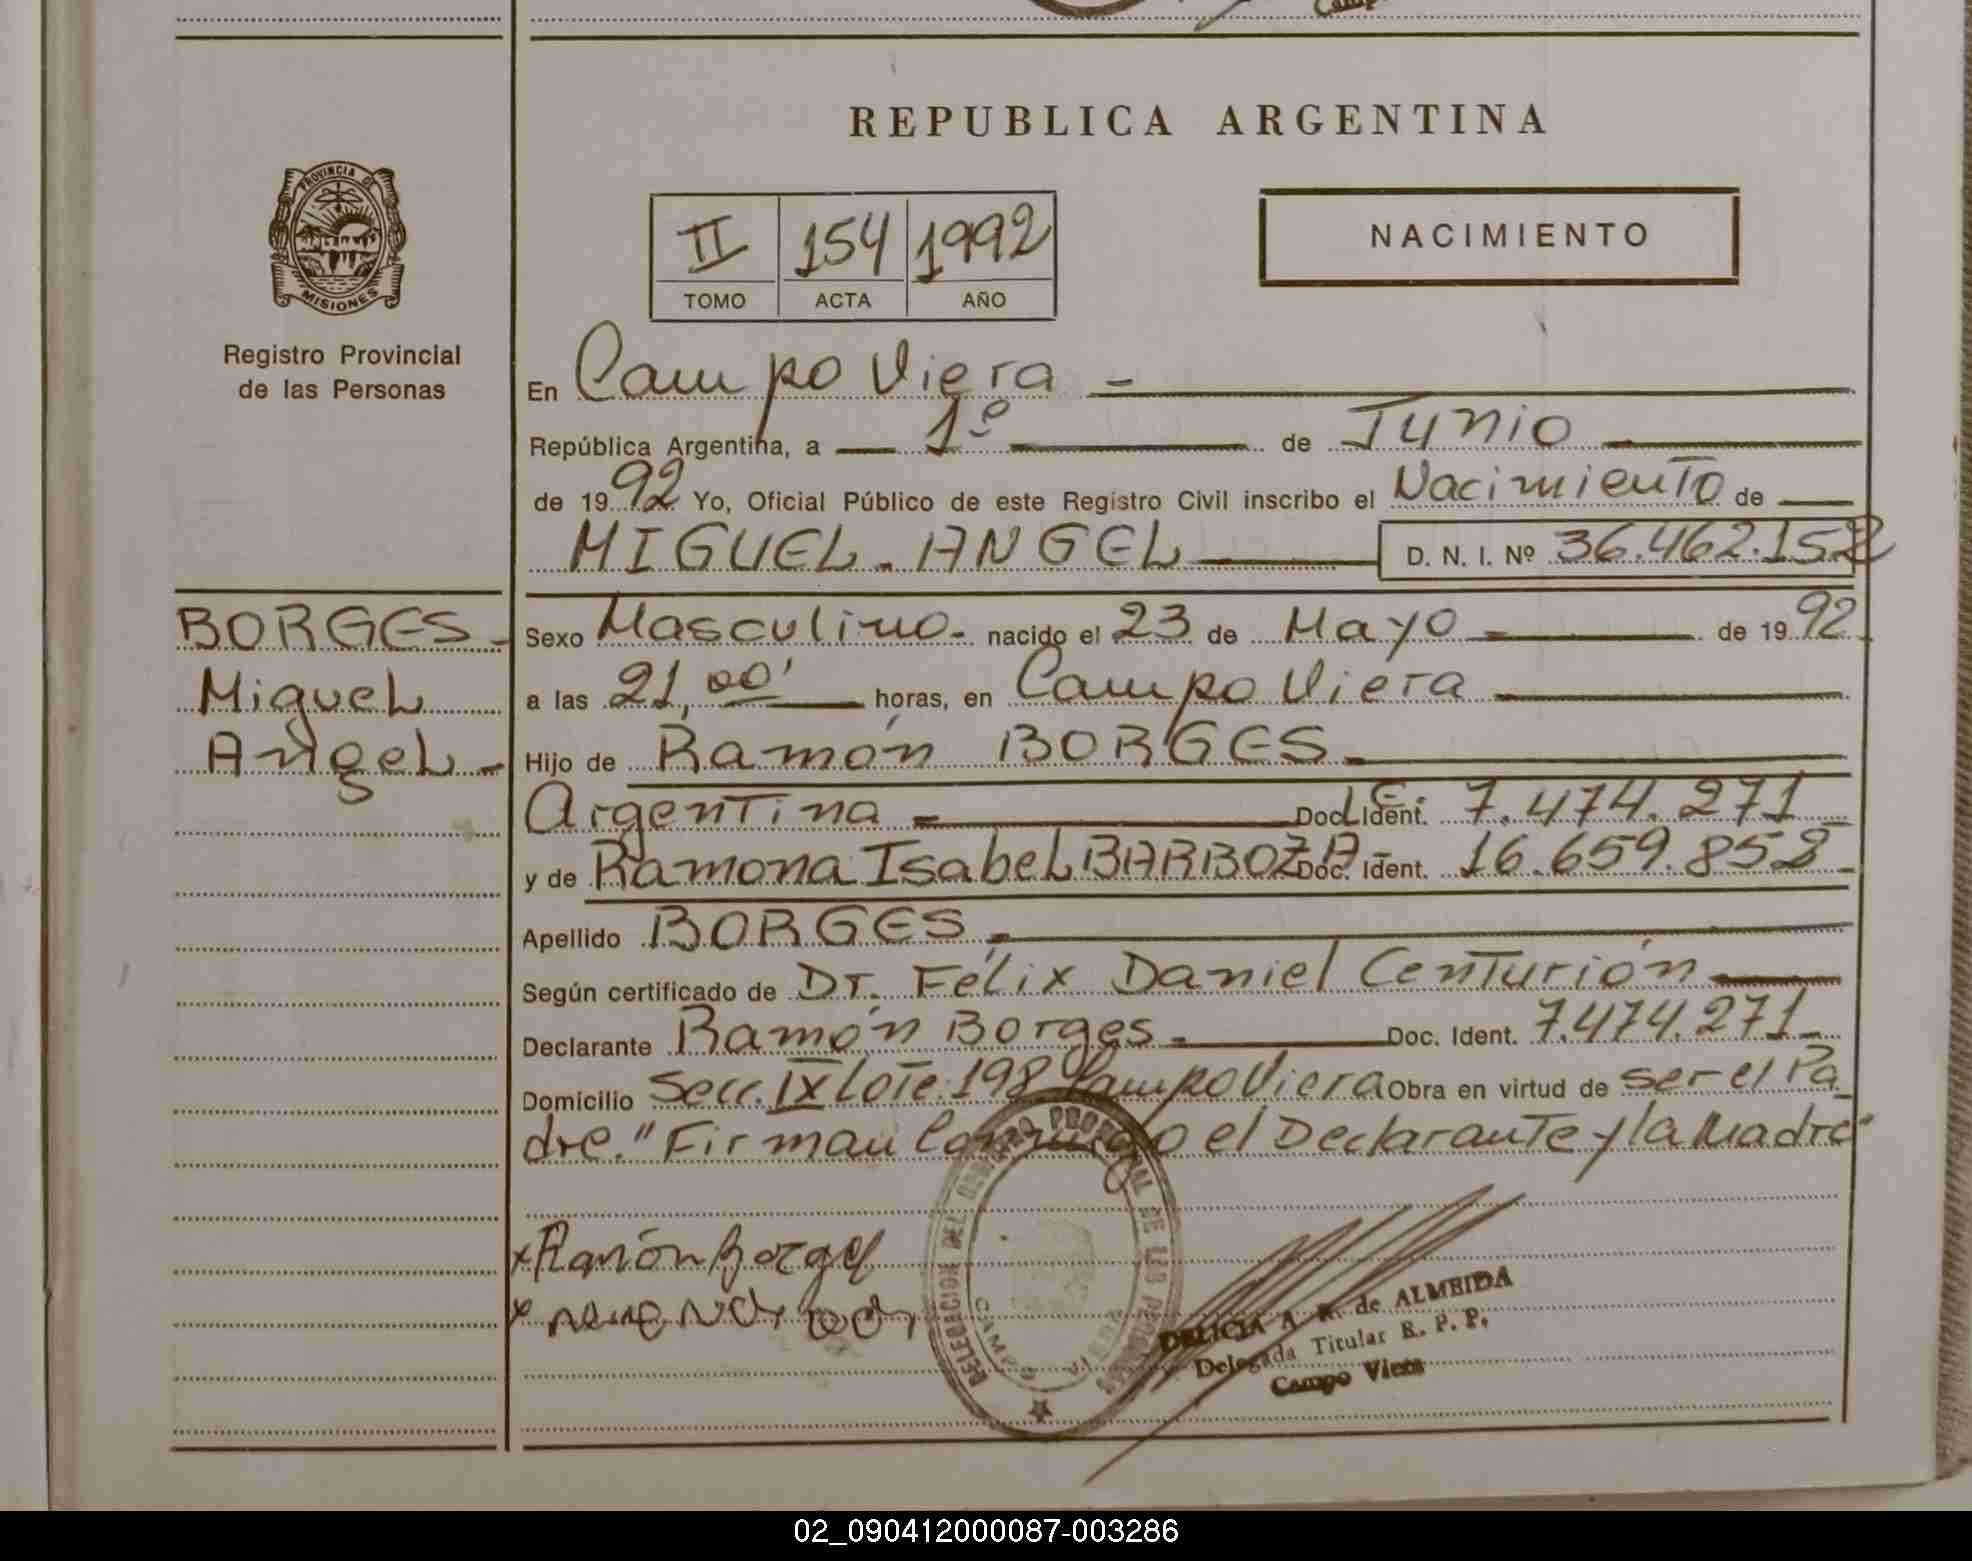 REPUBLICA ARGENTINA
PROVINCIA DE
MISIONES
Registro Provincial
de las Personas
II 154 1992
TOMO ACTA AÑO
NACIMIENTO
En Campo Viera -
República Argentina, a 1º de Junio
de 1992 Yo, Oficial Público de este Registro Civil inscribo el Nacimiento de
MIGUEL-ANGEL D. N. I. Nº 36.462.152
BORGES-
Miguel
Angel-
Sexo Masculino- nacido el 23 de Mayo de 1992
a las 21,00' horas, en Campo Viera
Hijo de Ramón BORGES
Argentina Doc. Ident. L.E. 7.474.271
y de Ramona Isabel BARBOZA- Doc. Ident. 16.659.852-
Apellido BORGES
Según certificado de Dr. Félix Daniel Centurión
Declarante Ramón Borges Doc. Ident. 7.474.271-
Domicilio Secc. IX Lote 198 Campo Viera Obra en virtud de ser el Pa
dre." Firman Conmigo el Declarante y la Madre"
x Ramón Borges
x
DELEGACION DEL REGISTRO PROVINCIAL DE LAS PERSONAS
CAMPO VIERA
DELICIA A. R. de ALMEIDA
Delegada Titular R. P. P.
Campo Viera
02_090412000087-003286